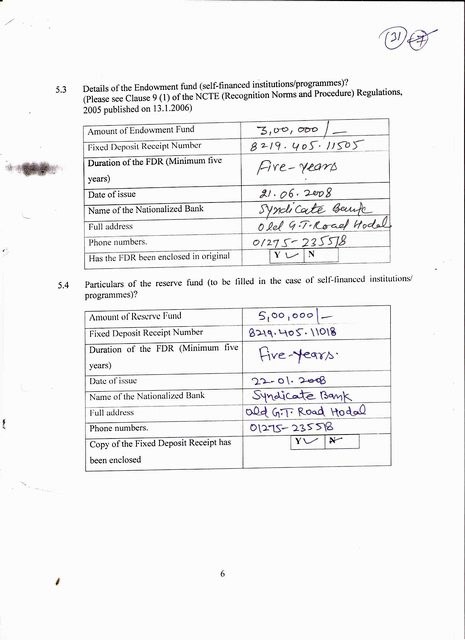 31
5.3 Details of the Endowment fund (self-financed institutions/programmes)?
(Please see Clause 9 (1) of the NCTE (Recognition Norms and Procedure) Regulations,
2005 published on 13.1.2006)
Amount of Endowment Fund 3,00,000/-
Fixed Deposit Receipt Number 8219.405.11505
Duration of the FDR (Minimum five
years) Five-years
Date of issue 21.06.2008
Name of the Nationalized Bank Syndicate Bank
Full address Old G.T. Road Hodal
Phone numbers. 01275-235518
Has the FDR been enclosed in original Y ✓ N
5.4 Particulars of the reserve fund (to be filled in the case of self-financed institutions/
programmes)?
Amount of Reserve Fund 5,00,000/-
Fixed Deposit Receipt Number 8219.405.11018
Duration of the FDR (Minimum five
years) Five-years.
Date of issue 22-01.2008
Name of the Nationalized Bank Syndicate Bank
Full address Old G.T. Road Hodal
Phone numbers. 01275-235518
Copy of the Fixed Deposit Receipt has
been enclosed Y ✓ N
6